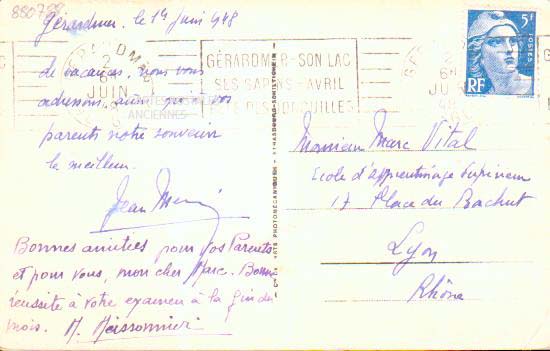 880798
Gérardmer. le 1er Juin 1948
GÉRARDMER-SON LAC
SES SAPINS-AVRIL
JONQUILLES
2
JUIN
5F
POSTES
RF
de vacances, nous vous
adressons, ainsi qu'à vos
parents notre souvenir
le meilleur.
ANCIENNES
Bonnes amitiés pour vos Parents
et pour vous, mon cher Marc. Bonne
réussite à votre examen à la fin du
mois. M. Meissonnier
ARTS PHOTOMÉCANIQUES - STRASBOURG-SCHILTIGHEIM
Monsieur Marc Vital
Ecole d'apprentissage Supérieur
17 Place du Bachut
Lyon
Rhône